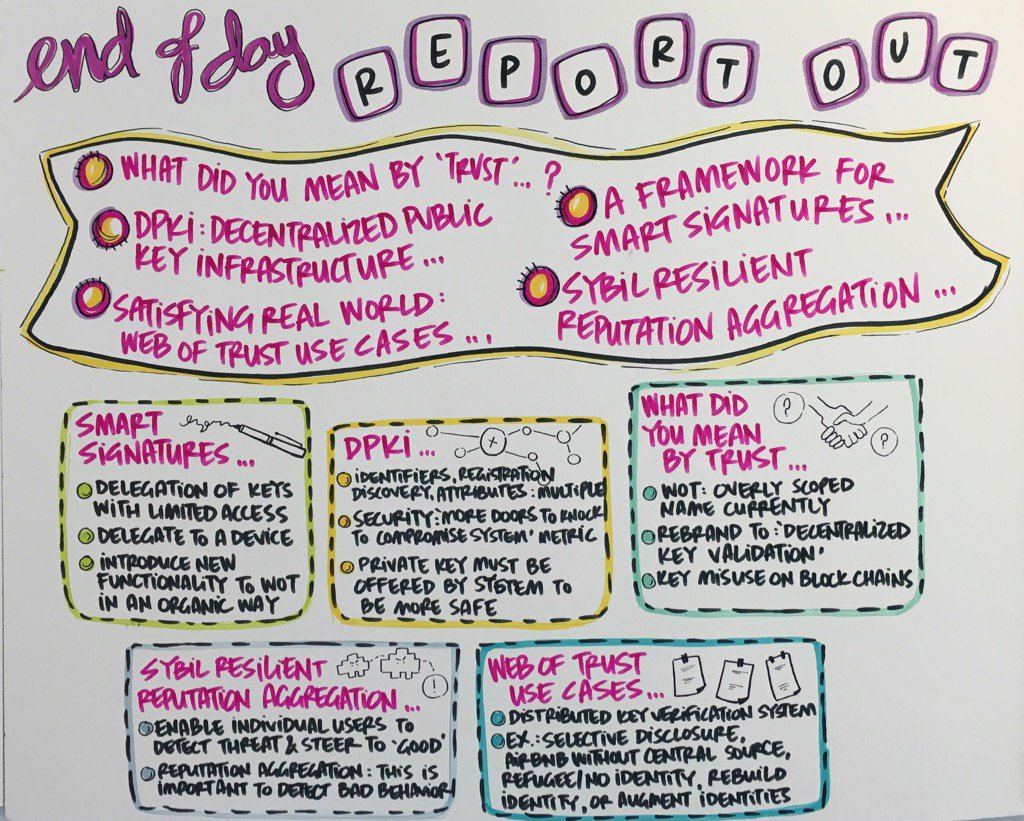 end of day REPORT OUT
WHAT DID YOU MEAN BY 'TRUST'...?
DPKI: DECENTRALIZED PUBLIC
KEY INFRASTRUCTURE ...
SATISFYING REAL WORLD:
WEB OF TRUST USE CASES ...
A FRAMEWORK FOR
SMART SIGNATURES ...
SYBIL RESILIENT
REPUTATION AGGREGATION ...
SMART
SIGNATURES ...
DELEGATION OF KEYS
WITH LIMITED ACCESS
DELEGATE TO A DEVICE
INTRODUCE NEW
FUNCTIONALITY TO WOT
IN AN ORGANIC WAY
DPKI ...
IDENTIFIERS, REGISTRATION
DISCOVERY, ATTRIBUTES: MULTIPLE
SECURITY: MORE DOORS TO KNOCK
TO COMPROMISE SYSTEM' METRIC
PRIVATE KEY MUST BE
OFFERED BY SYSTEM TO
BE MORE SAFE
WHAT DID
YOU MEAN
BY TRUST ...
? ?
WOT: OVERLY SCOPED
NAME CURRENTLY
REBRAND TO: 'DECENTRALIZED
KEY VALIDATION'
KEY MISUSE ON BLOCK CHAINS
SYBIL RESILIENT
REPUTATION AGGREGATION ...
!
ENABLE INDIVIDUAL USERS TO
DETECT THREAT & STEER TO 'GOOD'
REPUTATION AGGREGATION: THIS IS
IMPORTANT TO DETECT BAD BEHAVIOR
WEB OF TRUST
USE CASES ...
DISTRIBUTED KEY VERIFICATION SYSTEM
EX.: SELECTIVE DISCLOSURE,
AIRBNB WITHOUT CENTRAL SOURCE,
REFUGEE/NO IDENTITY, REBUILD
IDENTITY, OR AUGMENT IDENTITIES